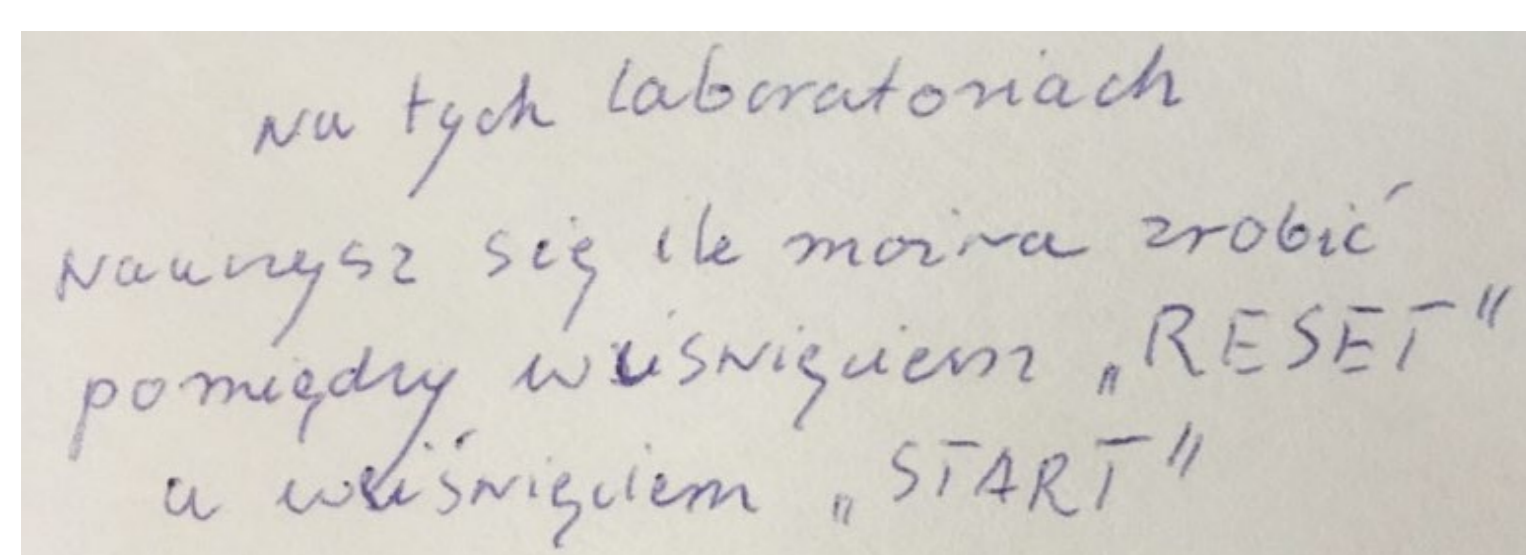 Na tych laboratoriach
Nauczysz się ile można zrobić
pomiędzy wciśnięciem „RESET”
a wciśnięciem „START”